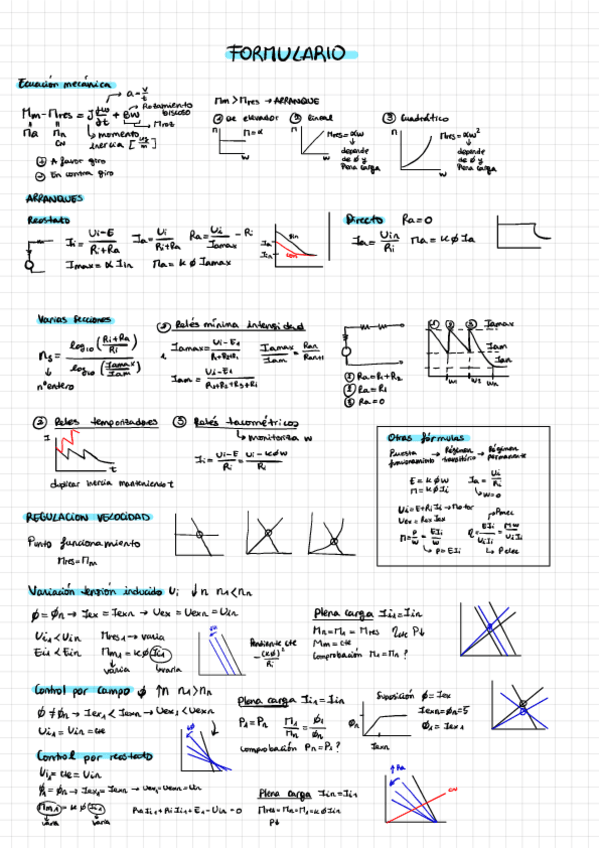 FORMULARIO
Ecuación mecánica
→ a = v/t
Mm - Mres = J dw/dt + Bw
→ Rozamiento biscoso
→ Mrot
Ma Mn
CN
→ momento inercia
+ A favor giro
- En contra giro
Mm > Mres → ARRANQUE
① De elevador ② lineal ③ Cuadrático
M = α
Mres = αw
Mres = αw²
depende de ϕ y Plena carga
depende de ϕ y Plena carga
ARRANQUES
Reostato
Ii = Ui-E / Ri+Ra
Ia = Ui / Ri+Ra
Ra = Ui / Iamax - Ri
Imax = α Iin
Ma = K ϕ Iamax
Directo Ra = 0
Ia = Uin / Ri
Ma = K ϕ Ia
Varias secciones
ns = log10 (Ri+Ra / Ri) / log10 (Iamax / Iam)
nº entero
① Relés mínima intensidad
Iamax = Ui-E1 / R1+R2+Ri
Iamax / Iam = Ran / Ran+1
Iam = Ui-E1 / R1+R2+R3+Ri
① Ra = R1+R2
② Ra = R1
③ Ra = 0
① ② ③ Iamax
Iam
w1 w2 wn
② Reles temporizadores
I
t
duplicar inercia mantenien t
③ Relés tacométricos
→ monitoriza w
Ii = Ui-E / Ri = Ui-Kϕw / Ri
Otras fórmulas
Puesta funcionamiento → Régimen transitorio → Régimen permanente
E = K ϕ w
M = K ϕ Ii
Ia = Ui / Ri
→ w=0
Ui = E+Ri Ii → Motor
Uex = Rex Iex
→ Pmec
M = P/w = EIi / w
→ P = EIi
η = EIi / UiIi = Mw / UiIi
→ P elec
REGULACION VELOCIDAD
Punto funcionamiento
Mres = Mm
Variación tensión inducido Ui ↓n n1<nn
ϕ = ϕn → Iex = Iexn → Uex = Uexn = Uin
Ui1 < Uin Mres1 → varia
Ei1 < Ein Mm1 = Kϕ Ii1
varia varia
Pendiente cte
-(Kϕ)² / Ri
Plena carga Ii1 = Iin
Mn = M1 = Mres P↓
Mm = cte
Comprobación M1 = Mn ?
Control por campo ϕ ↑n n1>nn
ϕ ≠ ϕn → Iex1 < Iexn → Uex1 < Uexn
Ui1 = Uin = cte
Plena carga Ii1 = Iin
P1 = Pn M1 / Mn = ϕ1 / ϕn
Comprobación Pn = P1 ?
Suposición ϕ = Iex
ϕn
Iexn
Iexn = ϕn = 5
ϕ1 = Iex1
Control por reostato
Ui1 = cte = Uin
ϕ = ϕn → Iex1 = Iexn → Uex1 = Uexn = Uin
Mm1 = K ϕ Ii1
varia varia
RaIi1 + RiIi1 + E1 - Uin = 0
Plena carga Iin = Ii1
Mres = Mn = M1 = Kϕ Iin
P↓
↑Ra
CN